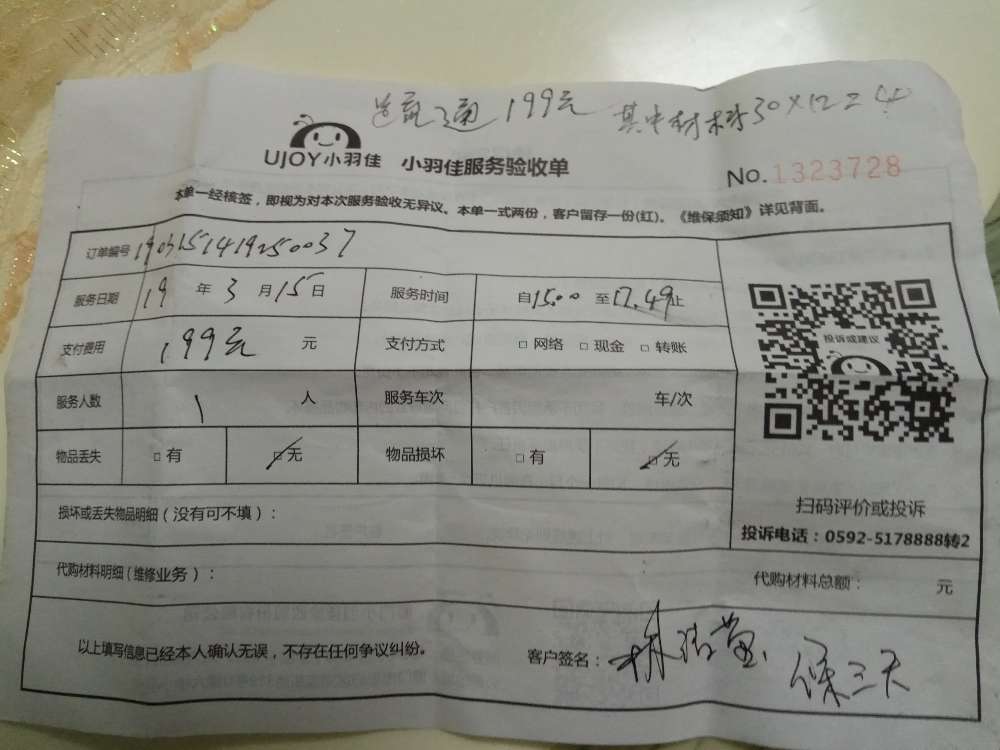 199元 其中材料30×12=
UJOY小羽佳 小羽佳服务验收单
No.1323728
本单一经核签，即视为对本次服务验收无异议。本单一式两份，客户留存一份(红)。《维保须知》详见背面。
订单编号 1903151419250037
服务日期 19 年 3 月 15 日 服务时间 自15:00 至17.49止
支付费用 199元 元 支付方式 □ 网络 □ 现金 □ 转账
投诉或建议
服务人数 1 人 服务车次 车/次
物品丢失 □ 有 □ 无 物品损坏 □ 有 □ 无
扫码评价或投诉
损坏或丢失物品明细（没有可不填）：
投诉电话：0592-5178888转2
代购材料明细（维修业务）： 代购材料总额： 元
以上填写信息已经本人确认无误，不存在任何争议纠纷。 客户签名：
保三天